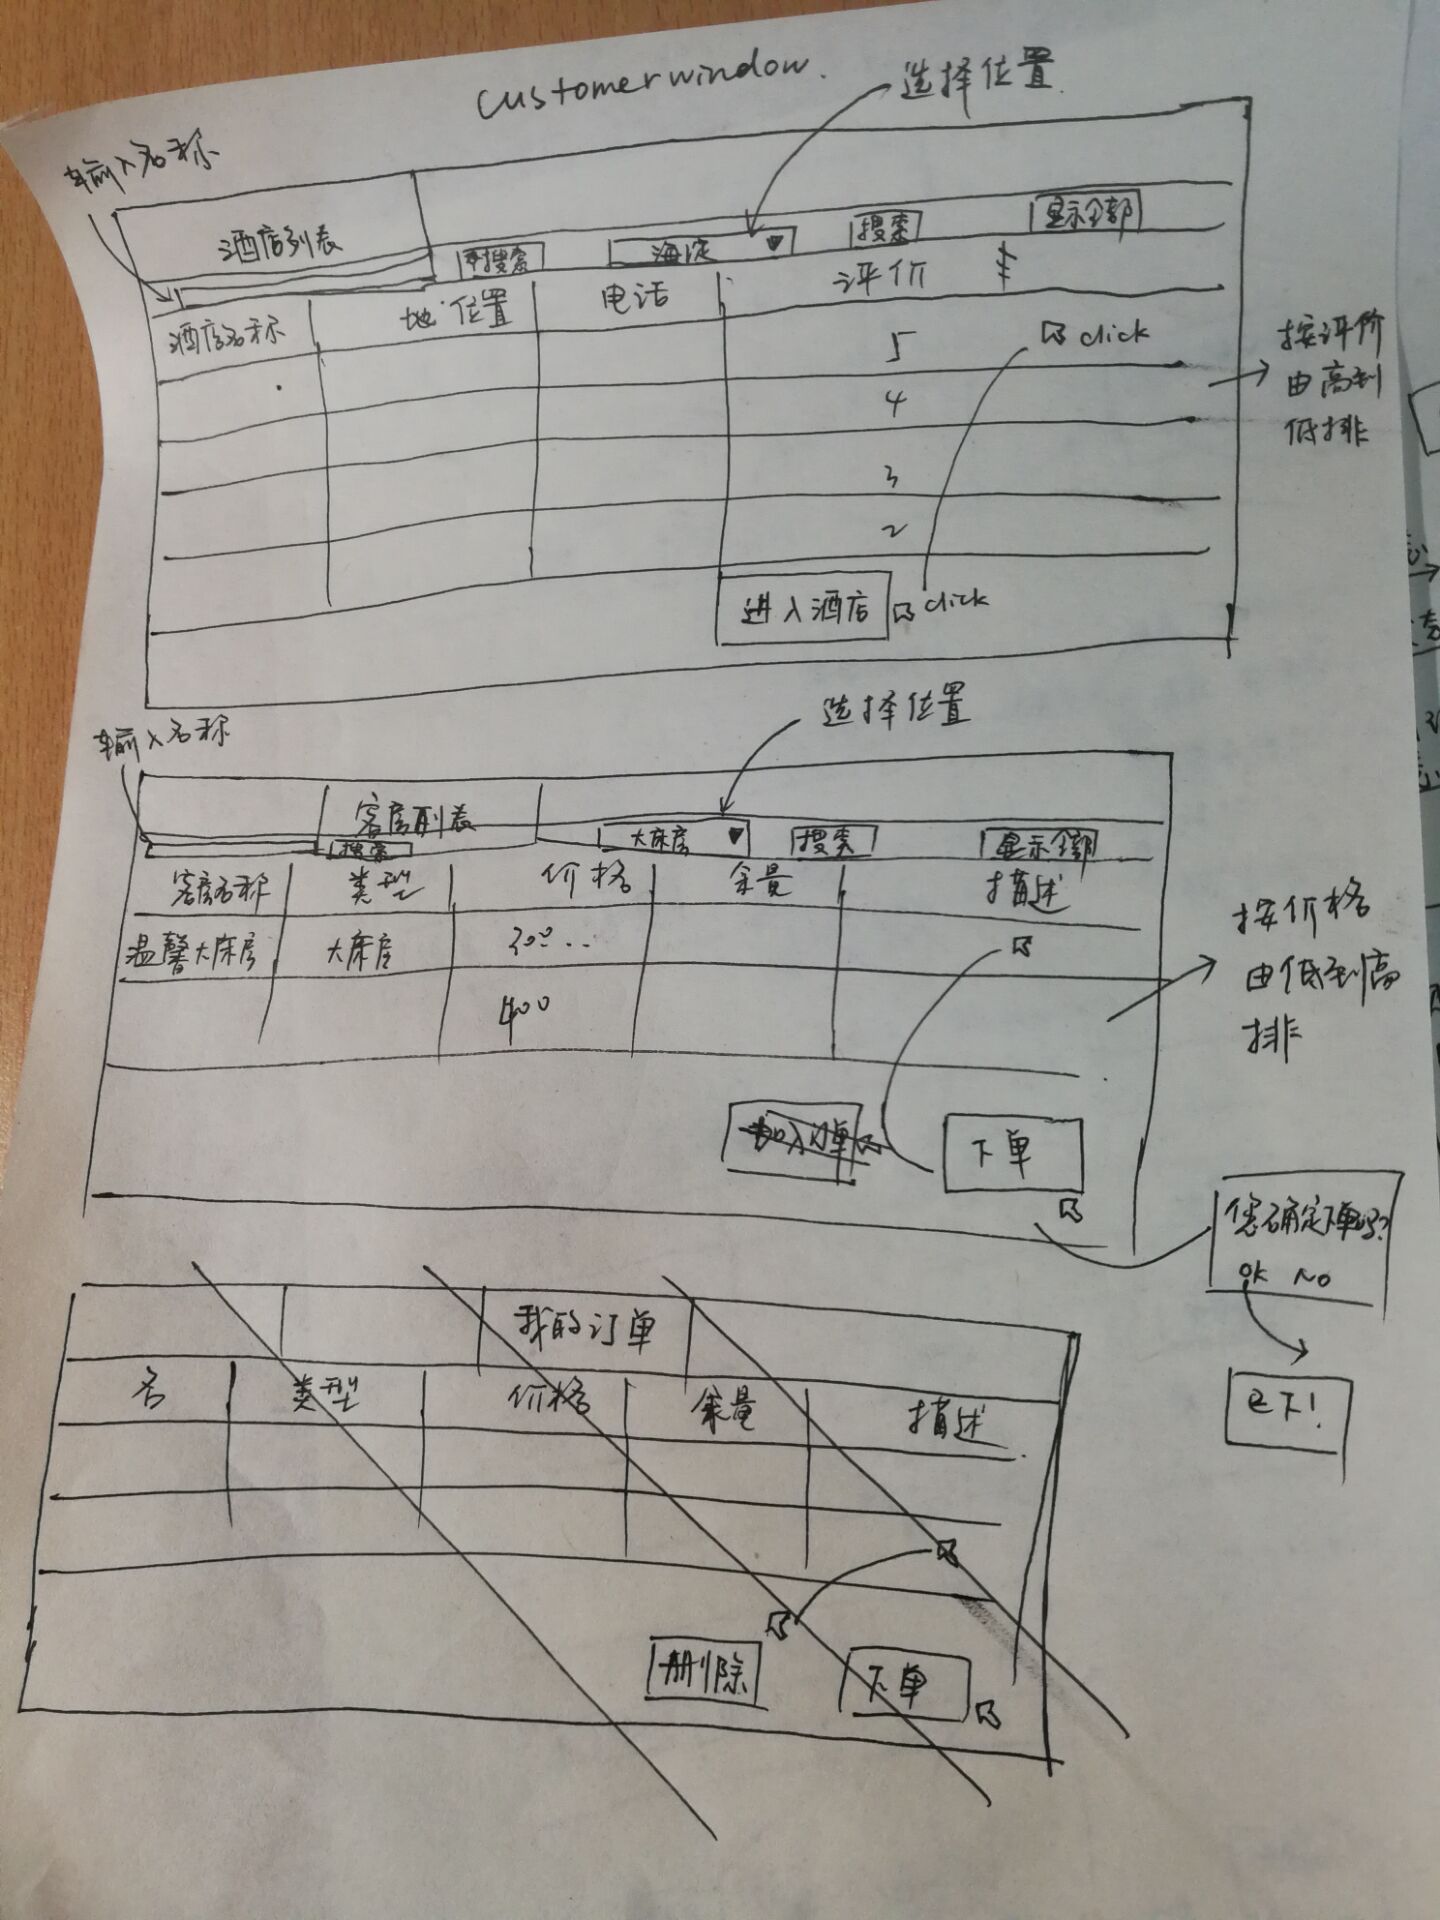 customerwindow.
选择位置
输入名称
酒店列表
搜索
海淀
搜索
显示全部
酒店名称
地位置
电话
评价
5
click
4
3
2
按评价
由高到
低排
进入酒店
click
选择位置
输入名称
客房列表
搜索
大床房
搜索
显示全部
客房名称
类型
价格
余量
描述
温馨大床房
大床房
300..
400
按价格
由低到高
排
加入订单
下单
您确定下单吗?
OK NO
已下!
我的订单
名
类型
价格
余量
描述
删除
下单